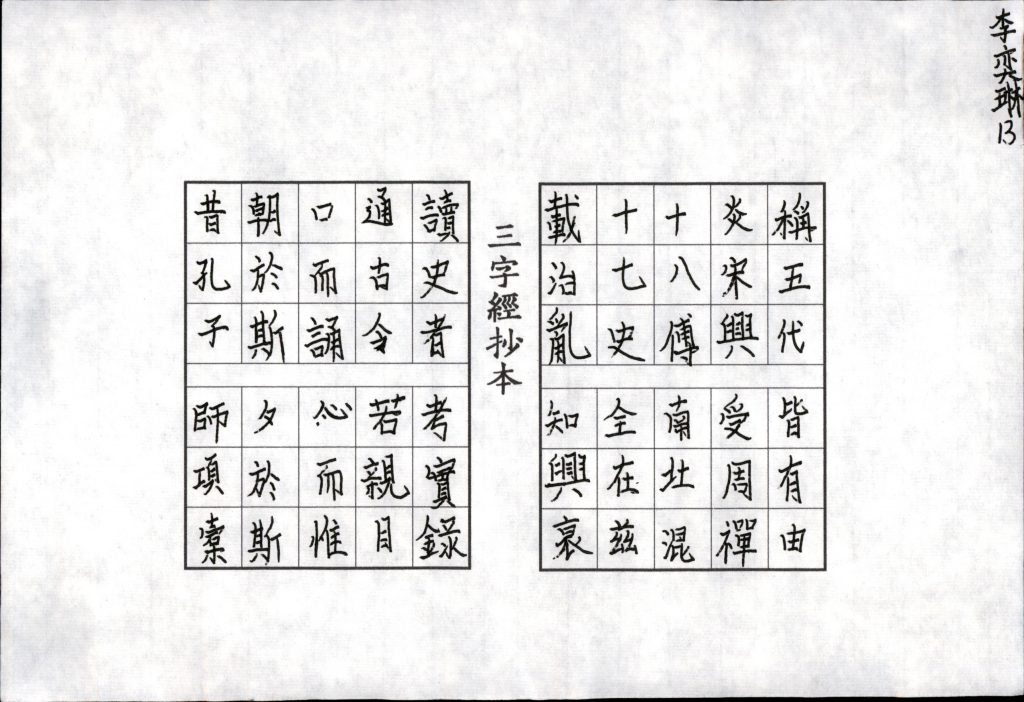 李奕琳13
稱五代皆有由
炎宋興受周禪
十八傅南北混
十七史全在茲
載治亂知興衰
三字經抄本
讀史者考實錄
通古令若親目
口而誦心而惟
朝於斯夕於斯
昔孔子師項橐